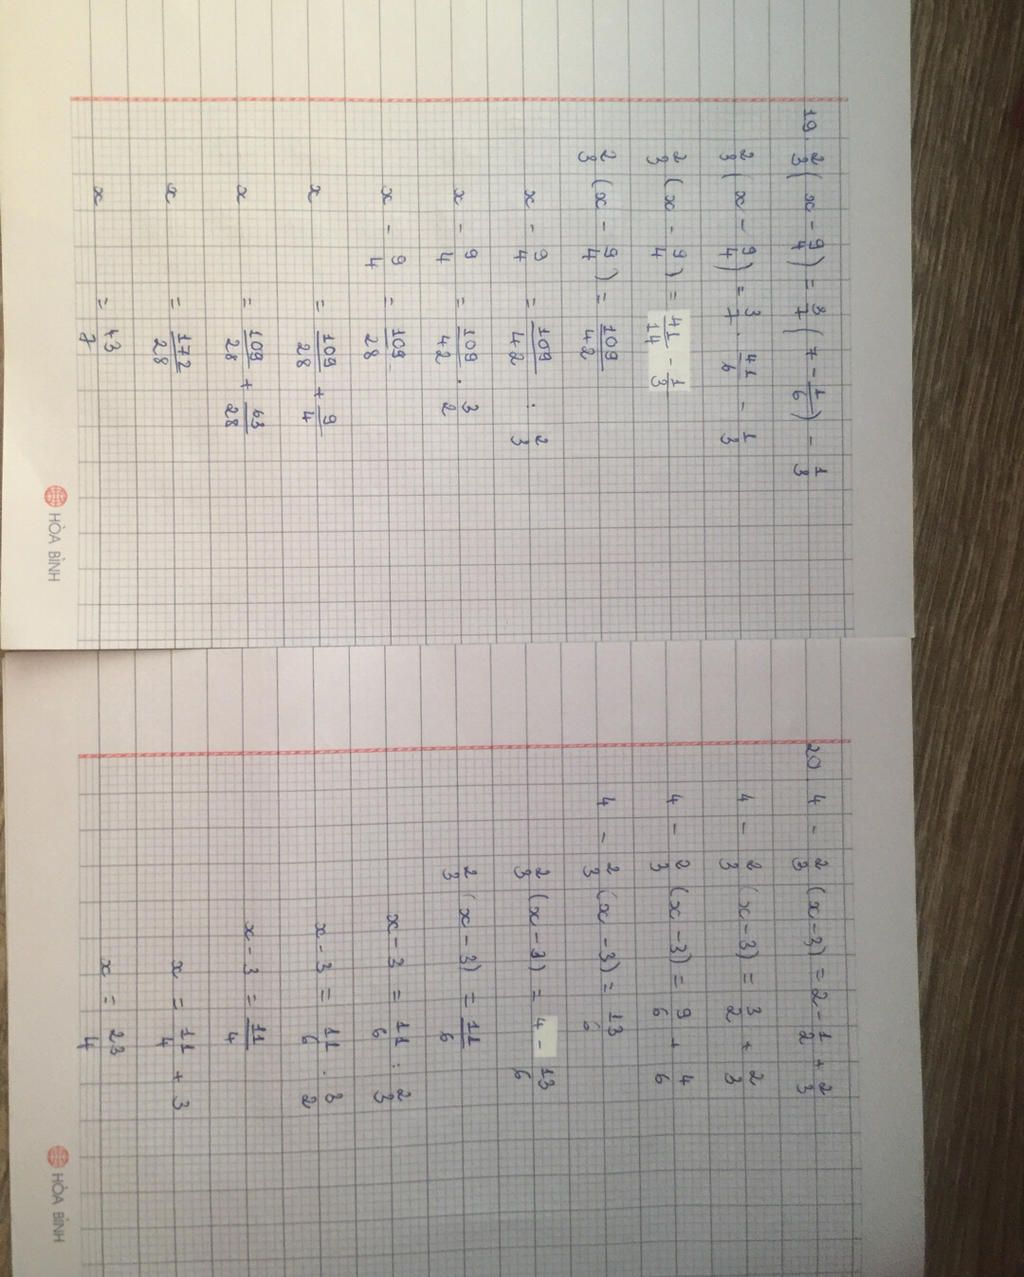 19. 2/3 ( x - 9/4 ) = 3/7 ( 7 - 1/6 ) - 1/3
2/3 ( x - 9/4 ) = 3/7 . 41/6 - 1/3
2/3 ( x - 9/4 ) = 41/14 - 1/3
2/3 ( x - 9/4 ) = 109/42
x - 9/4 = 109/42 : 2/3
x - 9/4 = 109/42 . 3/2
x - 9/4 = 109/28
x = 109/28 + 9/4
x = 109/28 + 63/28
x = 172/28
x = 43/7
HÒA BÌNH
20 4 - 2/3 (x-3) = 2 - 1/2 + 2/3
4 - 2/3 (x-3) = 3/2 + 2/3
4 - 2/3 (x-3) = 9/6 + 4/6
4 - 2/3 (x-3) = 13/6
2/3 (x-3) = 4 - 13/6
2/3 (x-3) = 11/6
x-3 = 11/6 : 2/3
x-3 = 11/6 . 3/2
x-3 = 11/4
x = 11/4 + 3
x = 23/4
HÒA BÌNH